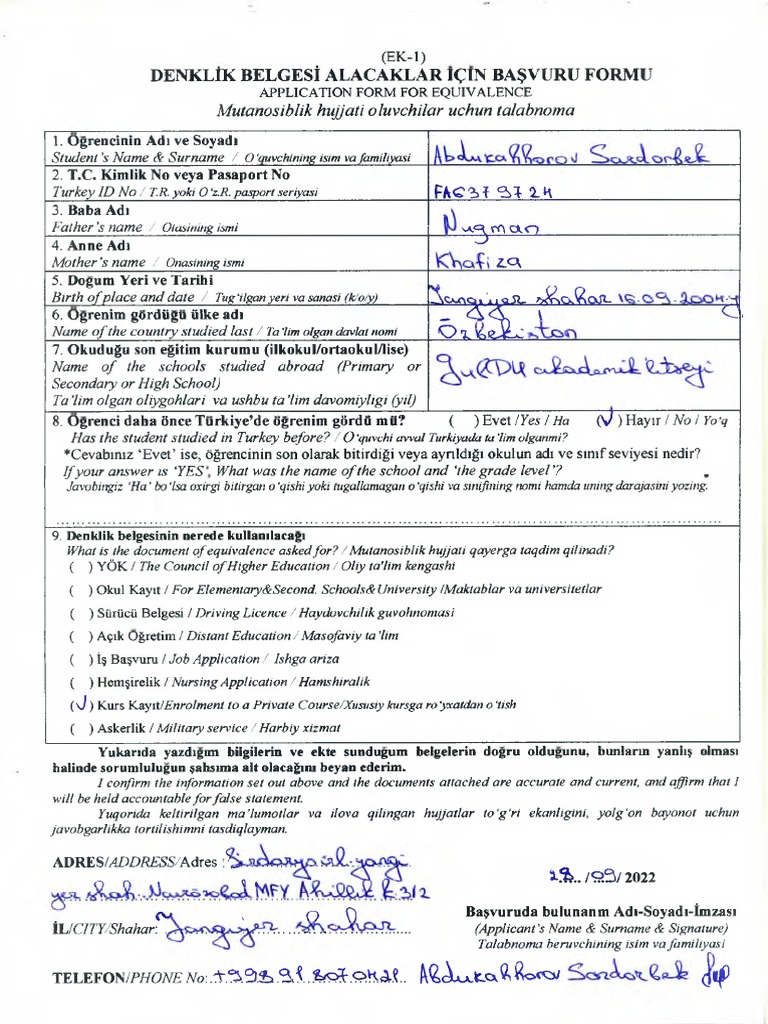 (EK-1)
DENKLİK BELGESİ ALACAKLAR İÇİN BAŞVURU FORMU
APPLICATION FORM FOR EQUIVALENCE
Mutanosiblik hujjati oluvchilar uchun talabnoma
1. Öğrencinin Adı ve Soyadı
Student's Name & Surname / O'quvchining isim va familiyasi
Abdukahhorov Sardorbek
2. T.C. Kimlik No veya Pasaport No
Turkey ID No / T.R. yoki O'z.R. pasport seriyasi
FA6379724
3. Baba Adı
Father's name / Otasining ismi
Nugman
4. Anne Adı
Mother's name / Onasining ismi
Khafiza
5. Doğum Yeri ve Tarihi
Birth of place and date / Tug'ilgan yeri va sanasi (k/o/y)
Jangiyer shahar 16.09.2004-y
6. Öğrenim gördüğü ülke adı
Name of the country studied last / Ta'lim olgan davlat nomi
Özbekiston
7. Okuduğu son eğitim kurumu (ilkokul/ortaokul/lise)
Name of the schools studied abroad (Primary or
Secondary or High School)
Ta'lim olgan oliygohlari va ushbu ta'lim davomiyligi (yil)
GulDU akademik litseyi
8. Öğrenci daha önce Türkiye'de öğrenim gördü mü? ( ) Evet /Yes / Ha (✓) Hayır / No / Yo'q
Has the student studied in Turkey before? / O'quvchi avval Turkiyada ta'lim olganmi?
*Cevabınız 'Evet' ise, öğrencinin son olarak bitirdiği veya ayrıldığı okulun adı ve sınıf seviyesi nedir?
If your answer is 'YES', What was the name of the school and 'the grade level'?
Javobingiz 'Ha' bo'lsa oxirgi bitirgan o'qishi yoki tugallamagan o'qishi va sinifining nomi hamda uning darajasini yozing.
9. Denklik belgesinin nerede kullanılacağı
What is the document of equivalence asked for? / Mutanosiblik hujjati qayerga taqdim qilinadi?
( ) YÖK / The Council of Higher Education / Oliy ta'lim kengashi
( ) Okul Kayıt / For Elementary&Second. Schools& University /Maktablar va universitetlar
( ) Sürücü Belgesi / Driving Licence / Haydovchilik guvohnomasi
( ) Açık Öğretim / Distant Education / Masofaviy ta'lim
( ) İş Başvuru / Job Application / Ishga ariza
( ) Hemşirelik / Nursing Application / Hamshiralik
(✓) Kurs Kayıt/Enrolment to a Private Course/Xususiy kursga ro'yxatdan o'tish
( ) Askerlik / Military service / Harbiy xizmat
Yukarıda yazdığım bilgilerin ve ekte sunduğum belgelerin doğru olduğunu, bunların yanlış olması
halinde sorumluluğun şahsıma ait olacağını beyan ederim.
I confirm the information set out above and the documents attached are accurate and current, and affirm that I
will be held accountable for false statement.
Yuqorida keltirilgan ma'lumotlar va ilova qilingan hujjatlar to'g'ri ekanligini, yolg'on bayonot uchun
javobgarlikka tortilishimni tasdiqlayman.
ADRES/ADDRESS/Adres : Sirdarya vil. yangi
yer shah. Navro'zobod MFY Ahillik k 3/2
28 /09/ 2022
İL/CITY/Shahar: Jangiyer shahar
Başvuruda bulunanım Adı-Soyadı-İmzası
(Applicant's Name & Surname & Signature)
Talabnoma beruvchining isim va familiyasi
TELEFON/PHONE No: +998 91 8070421 Abdukahhorov Sardorbek